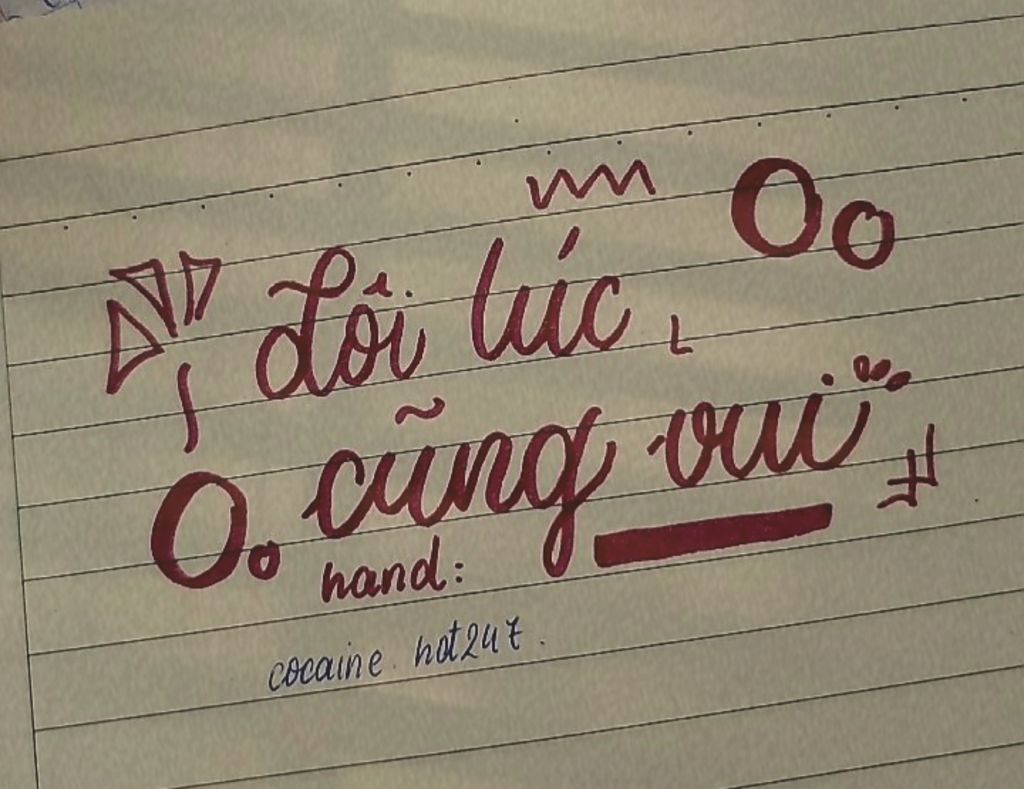 Đôi lúc
cũng vui
hand:
cocaine. hot247.